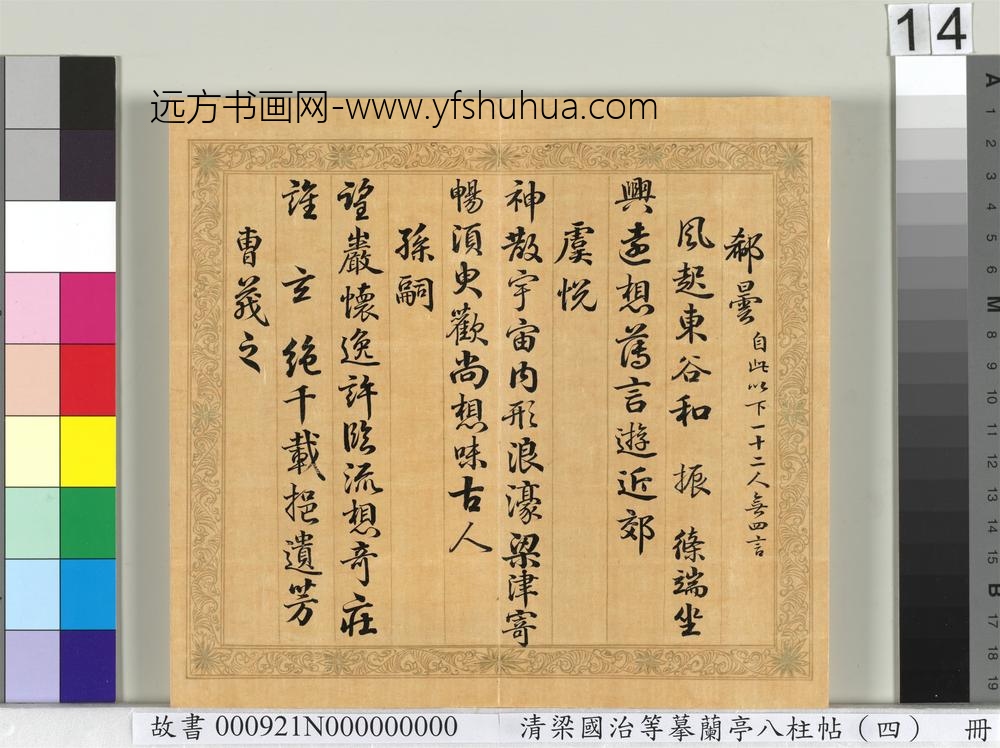 14
远方书画网-www.yfshuhua.com
郗曇 自此以下一十二人無四言
風起東谷和 振 條端坐
興遠想薄言遊近郊
虞悅
神散宇宙內形浪濠梁津寄
暢須臾歡尚想味古人
孫嗣
望巖懷逸許臨流想奇莊
誰 云 絕千載挹遺芳
曹茂之
A 1 2 3 4 5 6 M 8 9 10 11 12 13 14 15 B 17 18 19
故書 000921N000000000 清梁國治等摹蘭亭八柱帖（四） 冊